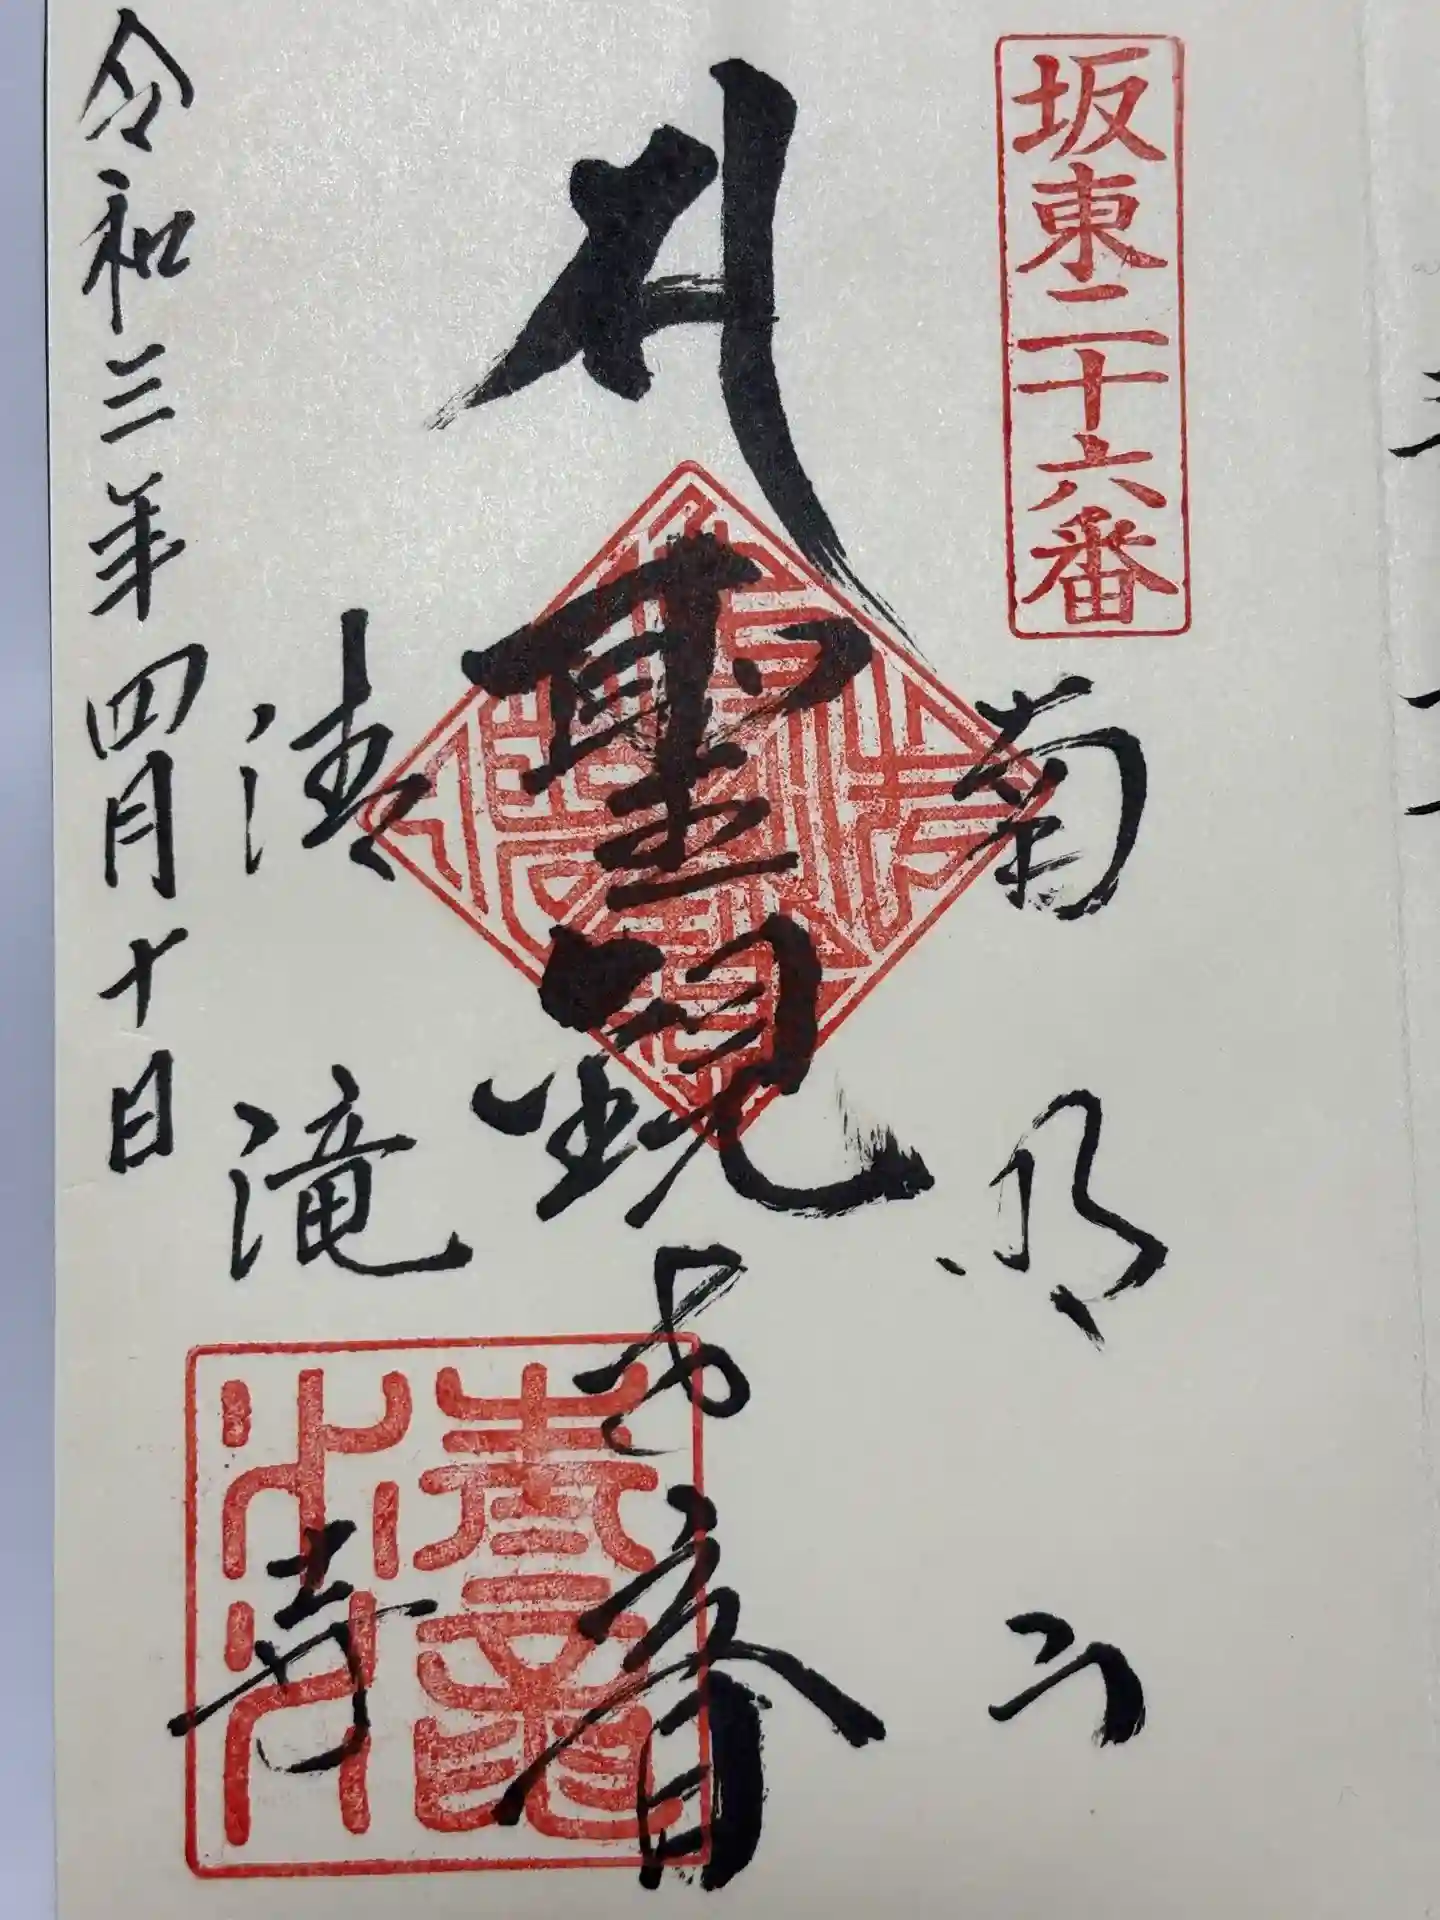 坂東二十六番
南明山
聖観世音
清滝寺
令和三年四月十日